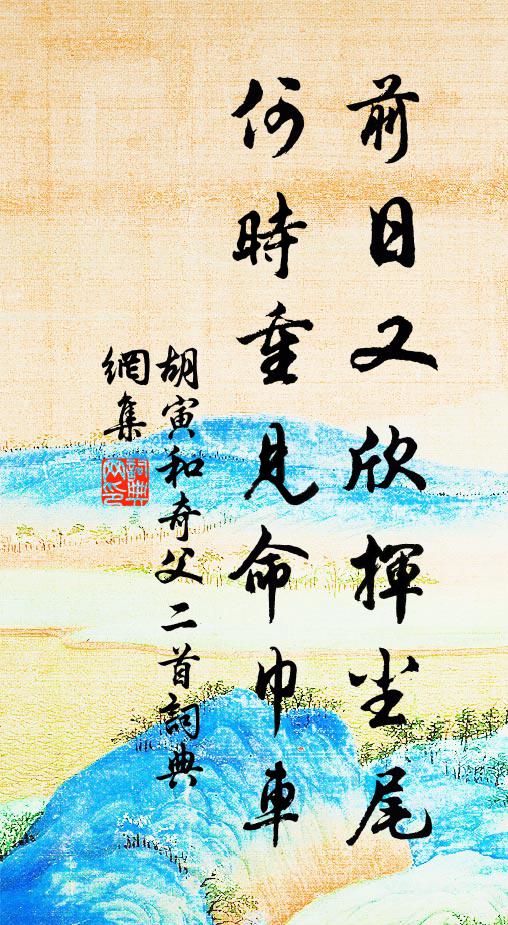 前日又欣揮尘尾
何時重見命巾車
胡寅和奇父二首詞典
網集
詞典